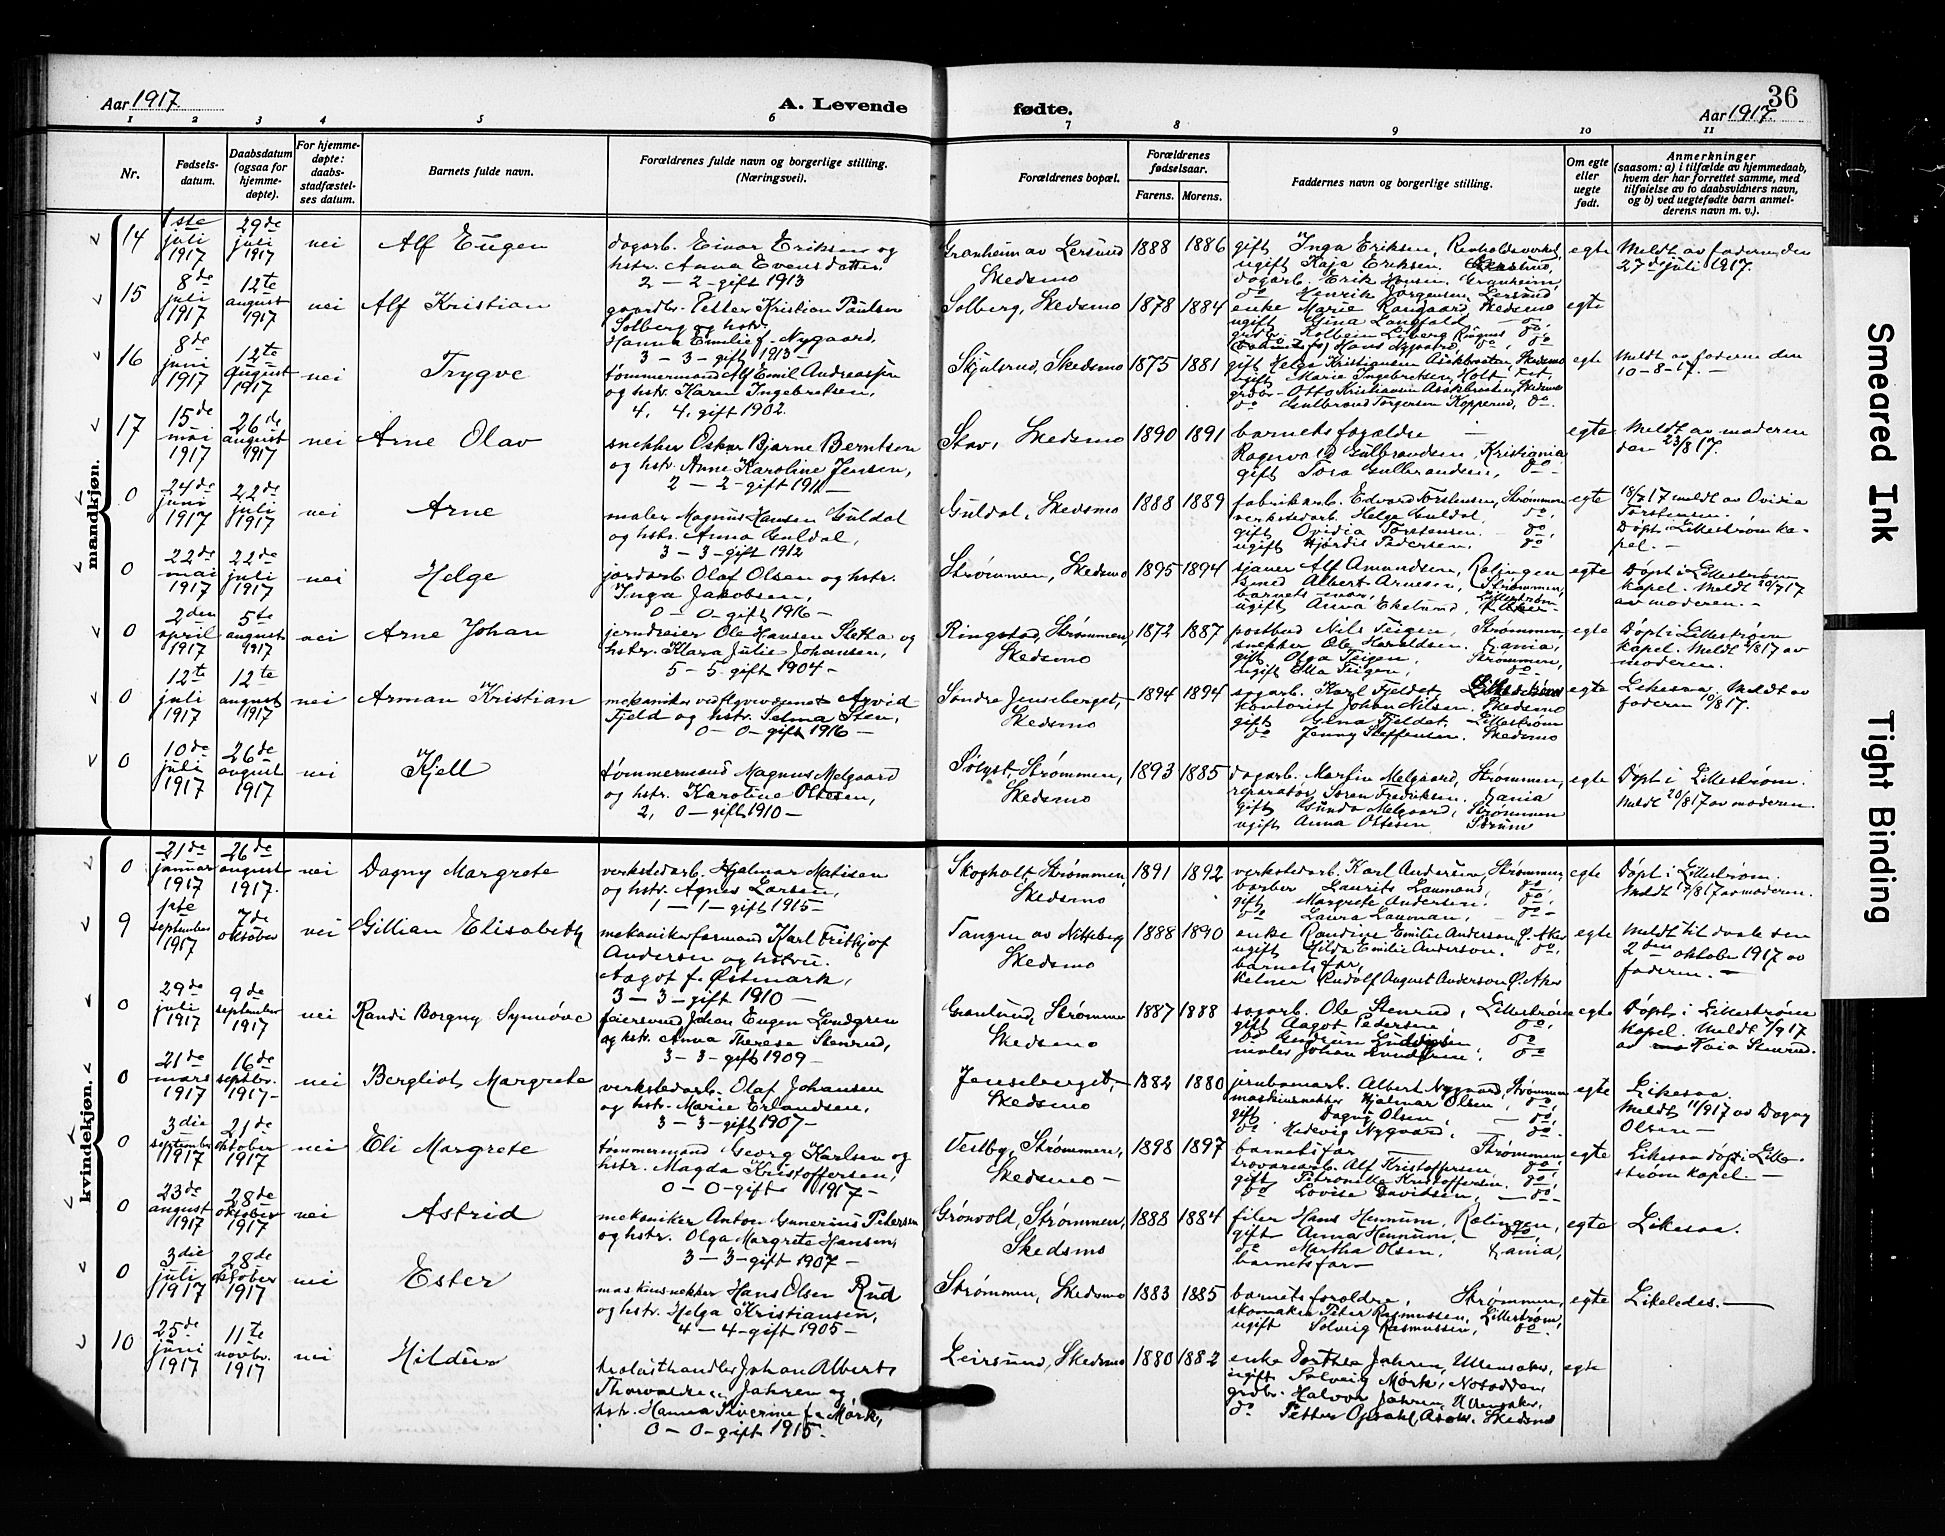 Aar 1917
A. Levende
fødte.
36
Aar 1917
1 2 3 4 5 6 7 8 9 10 11
Nr.
Fødsels-
datum.
Daabsdatum
(ogsaa for
hjemme-
døpte).
For hjemme-
døpte:
daabs-
stadfæstel-
ses datum.
Barnets fulde navn.
Forældrenes fulde navn og borgerlige stilling.
(Næringsvei).
Forældrenes bopæl.
Forældrenes
fødselsaar.
Farens. Morens.
Faddernes navn og borgerlige stilling.
Om egte
eller
uegte
født.
Anmerkninger
(saasom: a) i tilfælde av hjemmedaab,
hvem der har forrettet samme, med
tilføielse av to daabsvidners navn,
og b) ved uegtefødte barn anmel-
derens navn m. v.).
mandkjøn.
14
1ste
juli
1917
29de
juli
1917
nei
Alf Eugen
dagarb. Einar Eriksen og
hstr. Anna Evensdatter
2 – 2 – gift 1913
Granheim av Leirsund
Skedsmo
1888 1886
gift Inga Eriksen,
ugift Kaja Eriksen.
dagarb. Erik Hansen, Granheim,
do Henrik Jørgensen, Leirsund
egte
Meldt av faderen den
27de juli 1917.
15
8de
juli
1917
12te
august
1917
nei
Alf Kristian
gaardbr. Petter Kristian Paulsen
Solberg og hstr.
Hanna Emilie f. Nygaard.
3 – 3 – gift 1913 –
Solberg, Skedsmo
1878 1884
enke Marie Skedsmo
ugift Gina do.
egte
16
8de
juni
1917
12te
august
1917
nei
Trygve
tømmermand Alf Emil Andreassen
og hstr. Karen Ingebretsen,
4, 4, gift 1902.
Skjulsrud, Skedsmo
1875 1881
gift Helga Kristiansen Asakbraaten, Skedsmo
ugift Marie Ingebretsen, Holt,
grdbr. Otto Kristiansen Asakbraaten, Skedsmo
do Gulbrand Torgersen Kopperud, do.
egte
Meldt av faderen den
10 – 8 – 17. –
17
15de
mai
1917
26de
august
1917
nei
Arne Olav
snekker Oskar Bjarne Berntsen
og hstr. Anne Karoline Jensen,
2 – 2 – gift 1911 –
Stav, Skedsmo
1890 1891
barnets forældre –
Ragnvald Gulbrandsen, Kristiania
gift Tora Gulbrandsen, do –
egte
Meldt av moderen
den 23/8 17.
0
24de
juni
1917
22de
juli
1917
nei
Arne
maler Magnus Hansen Guldal
og hstr. Anna Guldal,
3 – 3 – gift 1912
Guldal, Skedsmo
1888 1889
fabrikarb. Edvard Torstensen, Strømmen
verkstedarb. Helge Guldal, do.
gift Ovidia Torstensen. – do
ugift Hjørdis Pedersen, do
egte
18/7 17 meldt av Ovidia
Torstensen.
Døpt i Lillestrøm ka-
pel. –
0
22de
mai
1917
22de
juli
1917
nei
Helge
jordarb. Olaf Olsen og hstr.
Inga Jakobsen,
0 – 0 – gift 1916 –
Strømmen, Skedsmo
1895 1894
Alf Amundsen, Rælingen
smed Albert Arnesen, Strømmen,
barnets mor, Lillestrøm
ugift Anna Ekelund,
egte
Døpt i Lillestrøm
kapel. Meldt 20/7 17
av moderen. –
0
2den
april
1917
5te
august
1917
nei
Arne Johan
jerndreier Ole Hansen Sletha og
hstr. Klara Julie Johansen,
5 – 5. gift 1904 –
Ringstad, Strømmen,
Skedsmo
1872 1887
postbud Nils Teigen, Strømmen,
snekker Ole Haraldsen. Xania,
gift Olga Teigen, Strømmen,
ugift Ella Teigen, do –
egte
Døpt i Lillestrøm
kapel. Meldt /8 17 av
moderen.
0
12te
juli
1917
12te
august
1917
nei
Arman Kristian
mekaniker ved flyvevæsenet Ayvid
Fjeld og hstr. Selma Sten,
0 – 0 – gift 1916 –
Søndre Jenseberget, –
Skedsmo
1894 1894
sagarb. Karl Fjeldet,
kontorist Johan Nilsen. Skedsmo
gift Gina Fjeldet. Lillestrøm
do Jenny Steffensen. Skedsmo
egte
Likesaa. Meldt av
faderen 10/8 17.
0
10de
juli
1917
26de
august
1917
nei
Kjell
tømmermand Magnus Melgaard
og hstr. Karoline Ottesen,
2, 0 – gift 1910 –
Sølyst, Strømmen,
Skedsmo
1893 1885
dagarb. Martin Melgaard, Strømmen,
reparatør Søren Fredriksen. Xania
gift Gunda Melgaard, Strømmen
ugift Anna Ottesen Sørum
egte
Døpt i Lillestrøm.
Meldt 20/8 17 av moderen.
kvindekjøn.
0
21de
januar
1917
26de
august
1917.
nei
Dagny Margrete
verkstedarb. Hjalmar Matisen
og hstr. Agnes Larsen,
1 – 1 – gift 1915 –
Skogholt, Strømmen,
Skedsmo
1891 1892
verkstedarb. Karl Andersen, Strømmen,
barber Laurits Laumann, do,
gift Margrete Andersen, do,
do Laura Lauman, – do –
egte
Døpt i Lillestrøm.
Meldt /8 17 av moderen.
9
1ste
september
1917
7de
oktober
nei
Gillian Elisabeth
mekanikerformand Karl Fritjof
Andersen og hstru.
Aagot f. Østmark,
3 – 3 – gift 1910 –
Tangen av Nitteberg
Skedsmo
1888 1890
enke Randine Emilie Anderson Ø. Aker
ugift Hilda Emilie Anderson. do,
barnets far,
kelner Rudolf August Anderson Ø. Aker
egte
Meldt til daab den
2den oktober 1917 av
faderen. –
0
29de
juli
1917
9de
september
1917
nei
Randi Borgny Synnøve
feiersvend Johan Eugen Lundgren
og hstr. Anna Therese Stenrud,
3 – 3 – gift 1909 –
Granlund, Strømmen
Skedsmo
1887 1888
sagarb. Ole Stenrud, Lillestrøm
gift Aagot Pedersen do,
do
maler Johan Lundgren, do
egte
Døpt i Lillestrøm
kapel. Meldt /9 17
av Kaia Stenrud.
0
21de
mars
1917
16de
septbr.
1917 –
nei
Bergliot Margrete
verkstedarb. Olaf Johansen
og hstr. Marie Erlandsen,
3 – 3 – gift 1907 –
Jenseberget, –
Skedsmo
1882 1880
Albert Nygaard, Strømmen
maskinsnekker Hjalmar Olsen, do,
gift Dagny Olsen – do,
do Hedevig Nygaard, – do –
egte
Likesaa.
Meldt 11/9 17 av Dagny
Olsen –
0
3die
september
1917
21de
oktober
1917
nei
Eli Margrete
tømmermand Georg Karlsen og
hstr. Magda Kristoffersen,
0 – 0 – gift 1917 –
Vestby, Strømmen,
Skedsmo –
1898 1897
barnets far – Strømmen
Alf Kristoffersen, do,
gift Petronelle Kristoffersen. do,
do Lovise Davidsen, – do –
egte
Likesaa døpt i Lille-
strøm kapel. –
0
23de
august
1917
28de
oktober
1917
nei
Astrid
mekaniker Anton Gunerius Pedersen
og hstr. Olga Margrete Hansen,
3 – 3 – gift 1907 –
Grønvold, Strømmen,
Skedsmo
1888 1884
filer Hans Hennum, Rælingen,
gift Anna Hennum, do,
do Martha Olsen, Xania,
barnets far –
egte
Likesaa.
0
3die
juli
1917
28de
oktober
1917
nei
Ester
maskinsnekker Hans Olsen Rud
og hstr. Helga Kristiansen,
4 – 4 – gift 1905 –
Strømmen, Skedsmo
1883 1885
barnets forældre, Strømmen,
skomaker Peter Rasmussen, Lillestrøm,
ugift Solveig Rasmussen, do.
egte
Likeledes. –
10
25de
juni
1917
11te
novbr.
1917
nei
Hildur
trælasthandler Johan Albert
Thorvaldsen Jahren og
hstr. Hanna Siverine f. Mørk,
0 – 0 – gift 1915.
Leirsund, Skedsmo
1880 1882
enke Dorthea Jahren, Ullensaker,
ugift Solveig Mørk, Notodden,
grdbr. Halvor Jahren, Ullensaker,
do Petter Opsahl, Asak, Skedsmo
egte
Smeared Ink
Tight Binding